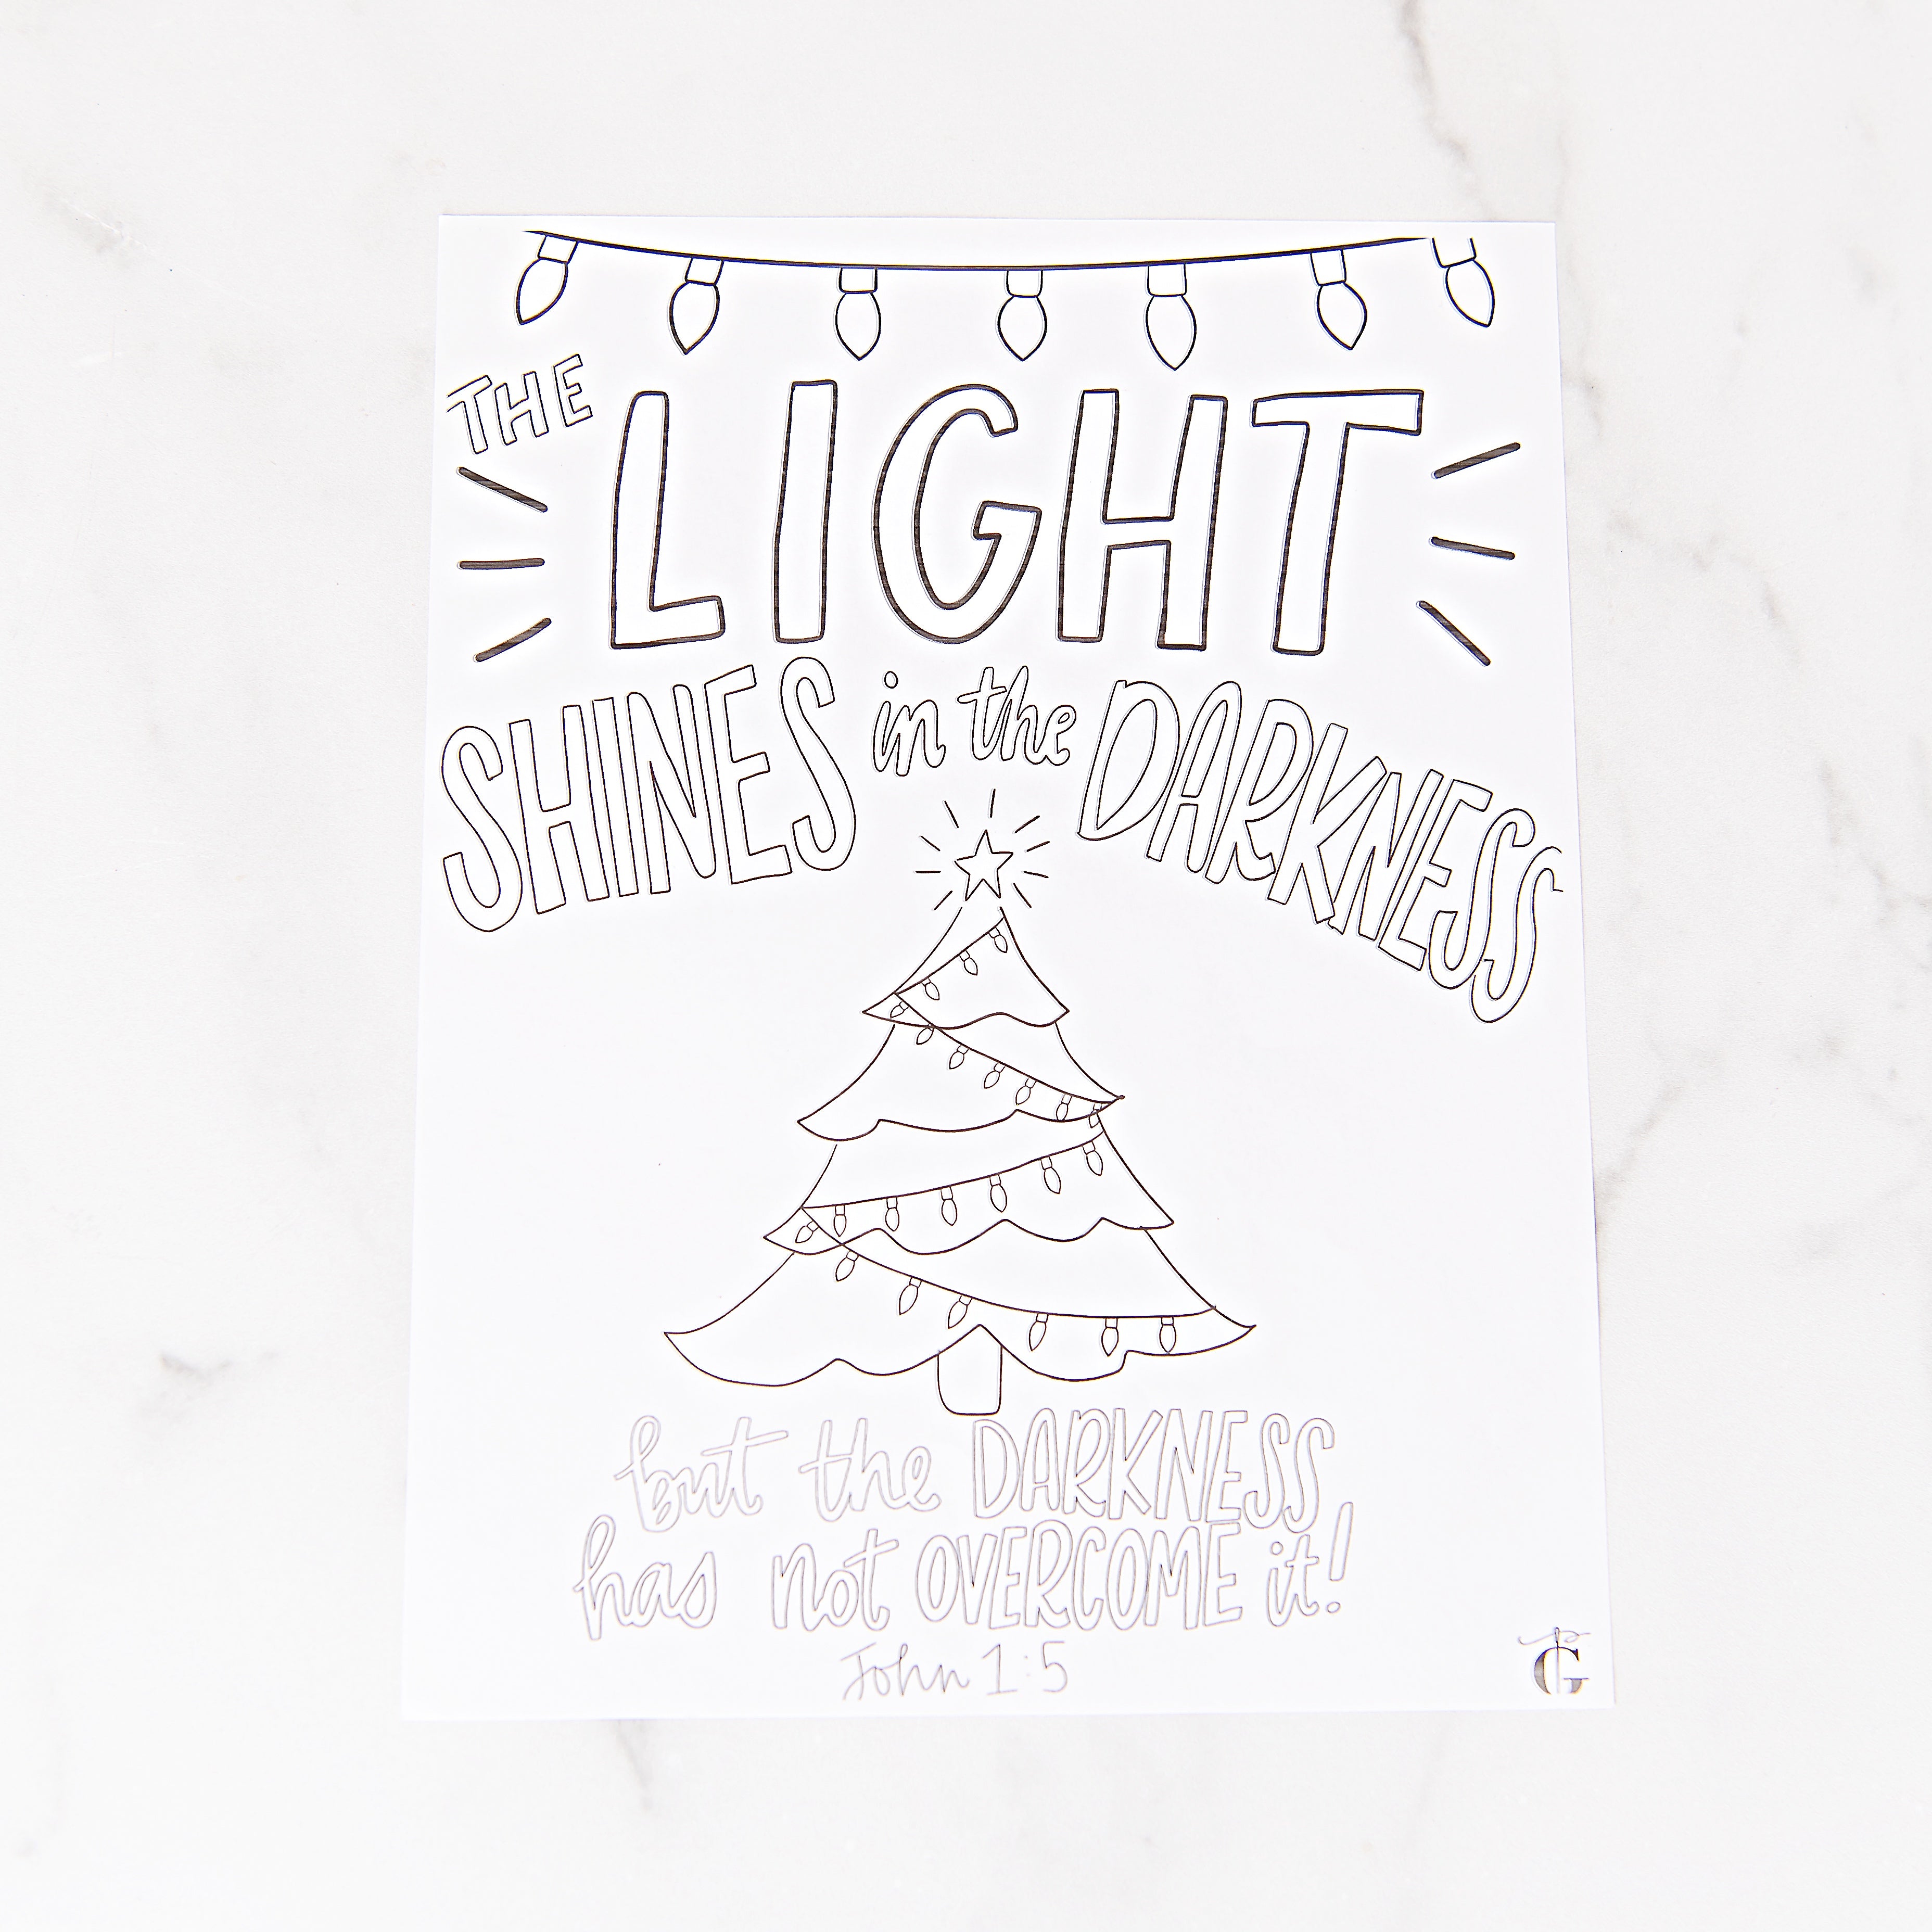 THE
LIGHT
SHINES in the DARKNESS
but the DARKNESS
has not OVERCOME it!
John 1:5
G